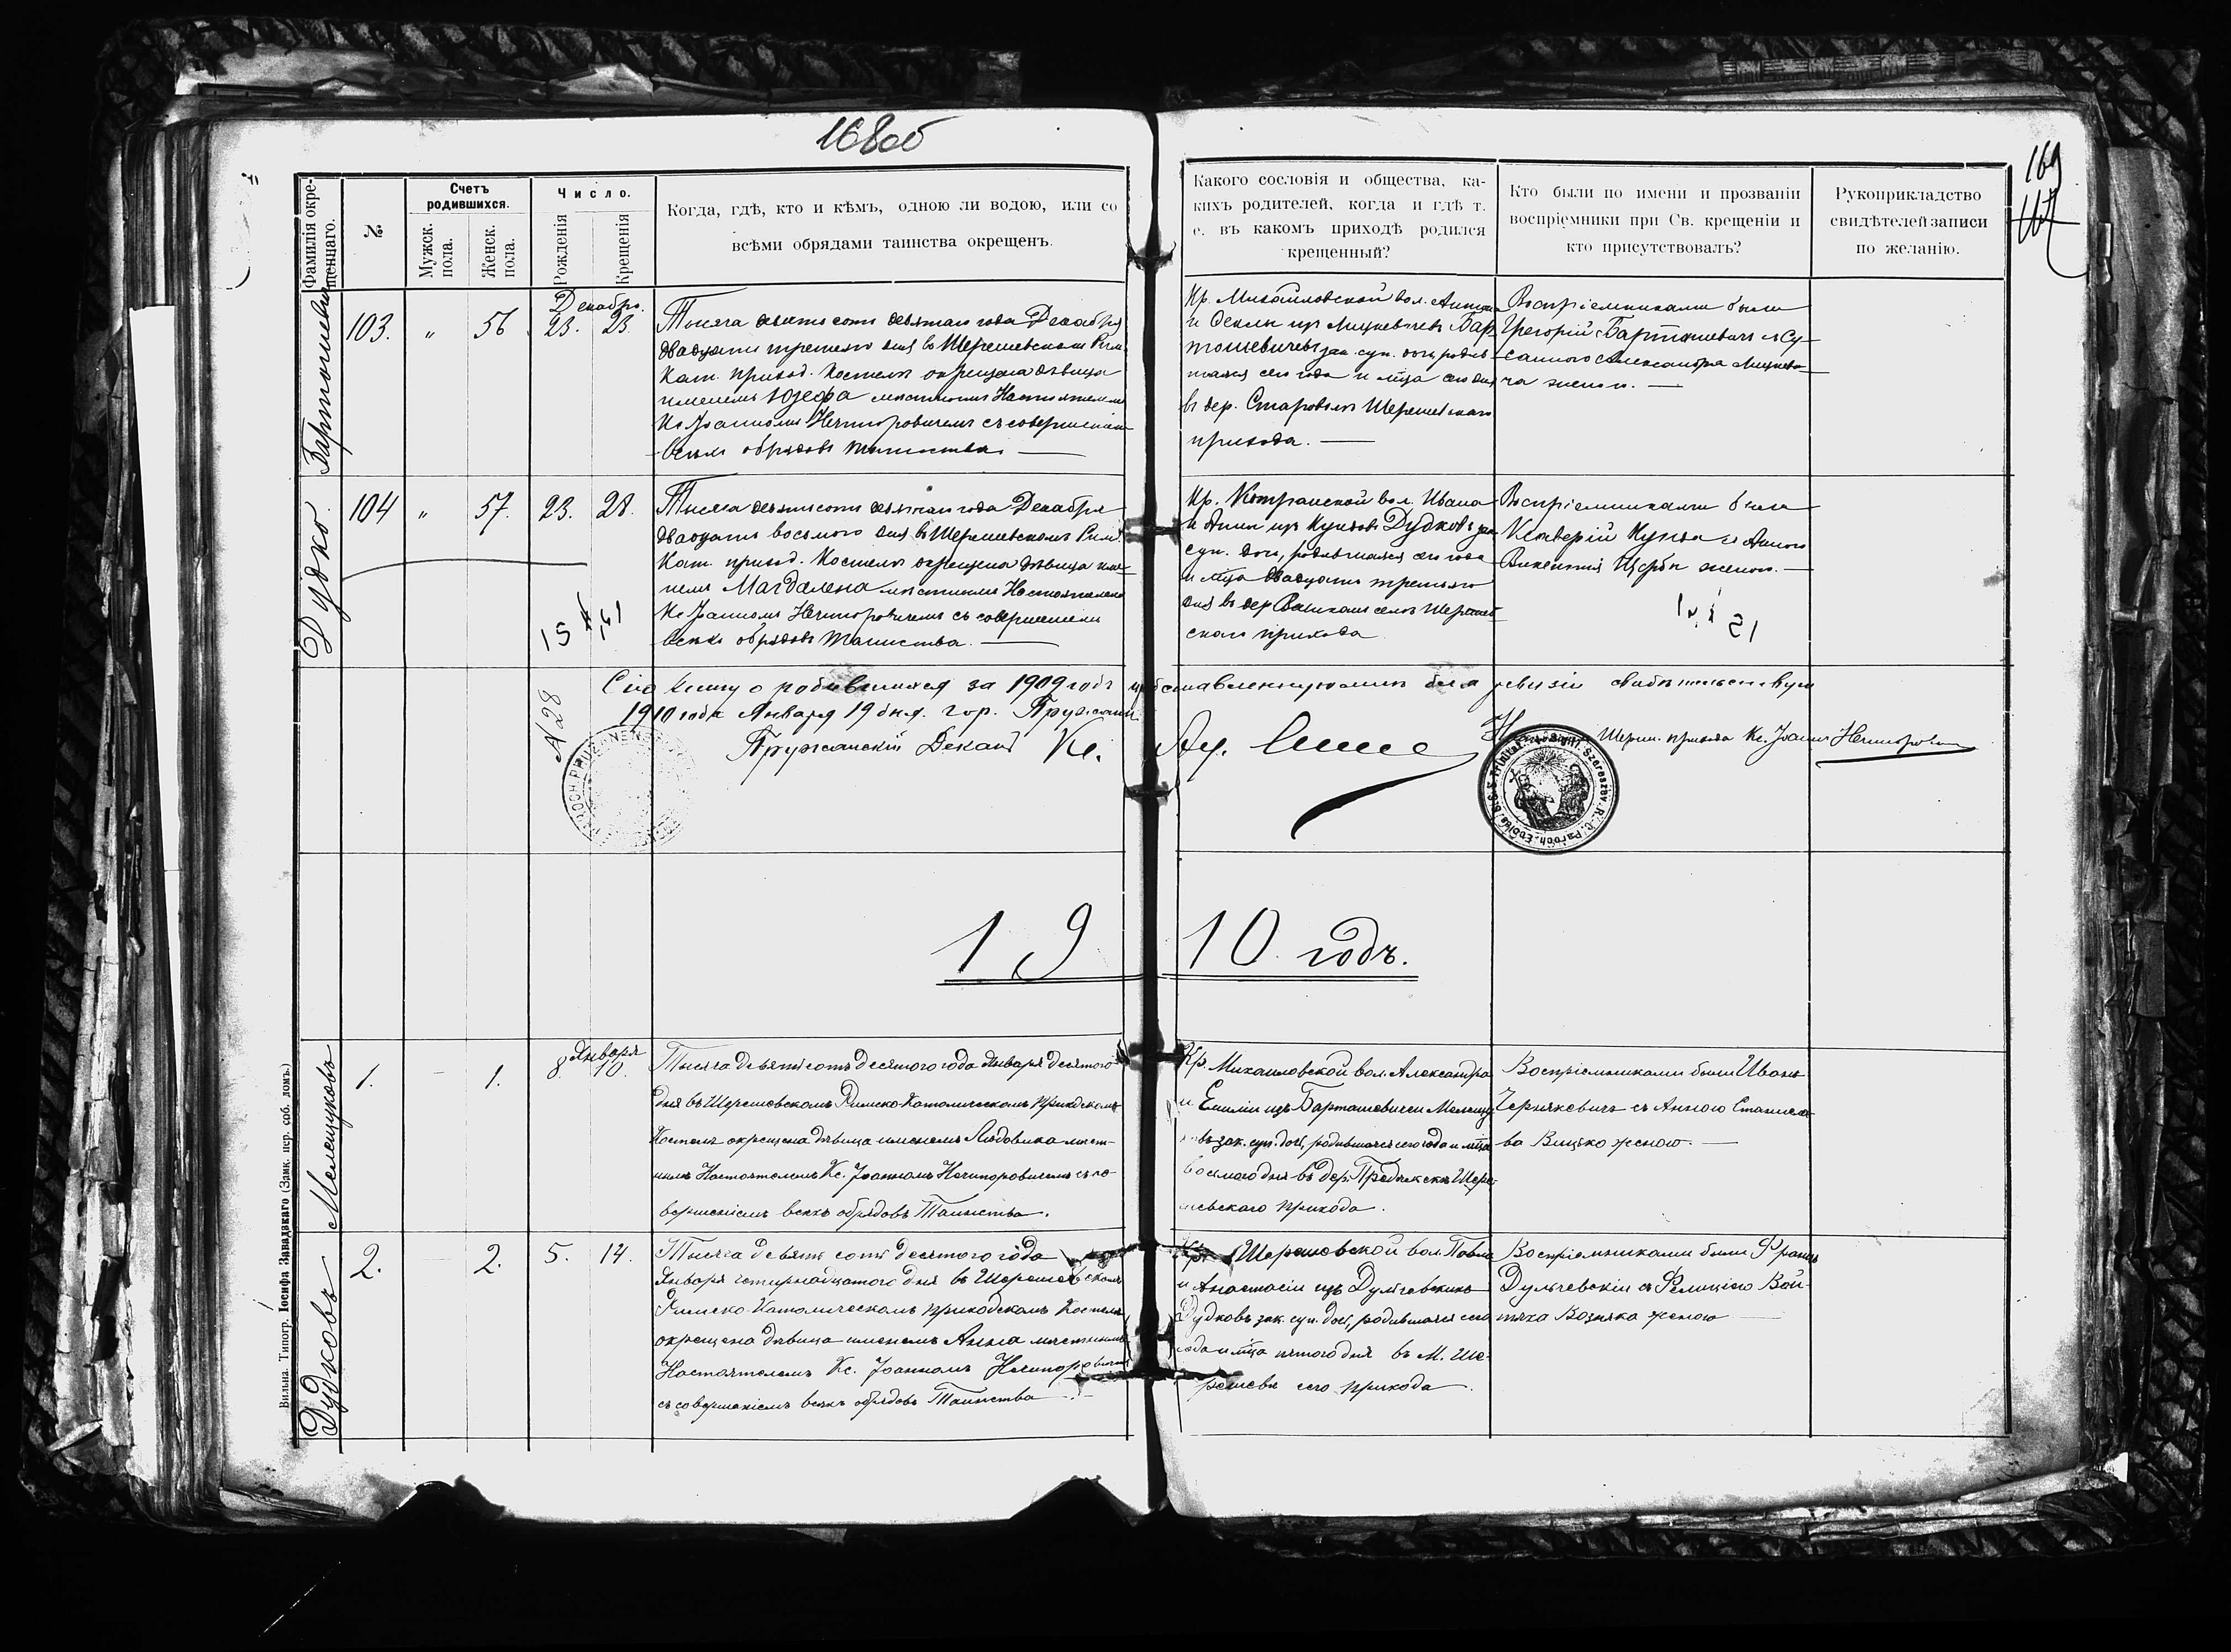 168об
169
Фамилія окре-
щеннаго.
№
Счетъ
родившихся.
Мужск.
пола.
Женск.
пола.
Число.
Рожденія
Крещенія
Когда, гдѣ, кто и кѣмъ, одною ли водою, или со
всѣми обрядами таинства окрещенъ.
Какого сословія и общества, ка-
кихъ родителей, когда и гдѣ т.
е. въ какомъ приходѣ родился
крещенный?
Кто были по имени и прозваніи
воспріемники при Св. крещеніи и
кто присутствовалъ?
Рукоприкладство
свидѣтелей записи
по желанію.
Бартошевичъ
103.
"
56
Декабрь.
23.
23.
Тысяча девятьсотъ девятаго года Декабря
двадцать третьяго дня въ Шерешевскомъ Рим.
Кат. приход. Костелѣ окрещена дѣвица
именемъ Юзефа мѣстнымъ Настоятелемъ
Кс Іоанномъ Нечипоровичемъ съ совершеніемъ
всѣхъ обрядовъ таинства.
Кр. Михайловской вол. Антона
и Феклы изъ Мицкевичевъ Бар-
тошевичевъ зак. суп. дочь, родив-
шаяся сего года и мѣца сего дня
въ дер. Старовол Шерешевскаго
прихода.
Воспріемниками были
Григорій Бартошевичъ съ Су-
санною Александра Мицкеви-
ча женою.
Дудко.
104
"
57.
23.
28.
Тысяча девятьсотъ девятаго года Декабря
двадцать восьмого дня въ Шерешевскомъ Рим.
Кат. приход. Костелѣ окрещена дѣвица име-
немъ Магдалена мѣстнымъ Настоятелемъ
Кс Іоанномъ Нечипоровичемъ съ совершеніемъ
всѣхъ обрядовъ таинства.
Кр. Котранской вол. Ивана
и Анны изъ Кунцовъ Дудковъ зак.
суп. дочь, родившаяся сего года
и мѣца двадцать третьяго
дня въ дер селѣ Шерешев-
скаго прихода
Воспріемниками были
Ксаверій Кунца съ Анною
Викентія Щербы женою.
15
№ 28
Сію книгу о родившихся за 1909 годъ представленную мнѣ для ревизіи свидѣтельствую
1910 года Января 19 дня. гор. Пружаны
Пружанскій Деканъ Кс.
Шереш. прихода Кс. Іоаннъ Нечипоровичъ
1910 годъ.
Мелещуковъ
1.
1.
Января
8.
10.
Тысяча девятьсотъ десятого года Января десятого
дня въ Шерешовскомъ Римско-Католическомъ Приходскомъ
Костелѣ окрещена дѣвица именемъ Людовика мѣст-
нымъ Настоятелемъ Кс. Іоанномъ Нечипоровичемъ съ со-
вершеніемъ всѣхъ обрядовъ Таинства.
Кр. Михаиловской вол. Александра
и Емиліи изъ Барташевичей Мелещу-
ковъ зак. суп. дочь, родившаяся сего года и мѣца
восьмого дня въ дер. Шере-
шевскаго прихода.
Воспріемниками были Иванъ
Черняковичъ съ Анною Станисла-
ва Вицько женою.
Дудковъ
2.
2.
5.
14.
Тысяча девять сотъ десятого года
Января четырнадцатого дня въ Шерешевскомъ
Римско-Католическомъ приходскомъ Костелѣ
окрещена дѣвица именемъ Анна мѣстнымъ
Настоятелемъ Кс. Іоанномъ Нечипоровичемъ
съ совершеніемъ всѣхъ обрядовъ Таинства
Кр. Шерешовской вол. Павла
и Анастасіи изъ Дульчевскихъ
Дудковъ зак. суп. дочь, родившаяся сего
года и мѣца пятого дня въ М. Ше-
решевѣ сего прихода.
Воспріемниками были Францъ
Дульчевскій съ Фелиціею Вой-
тѣха Возняка женою
Вильна. Типогр. Іосифа Завадзкаго (Замк. пер. соб. домъ.)